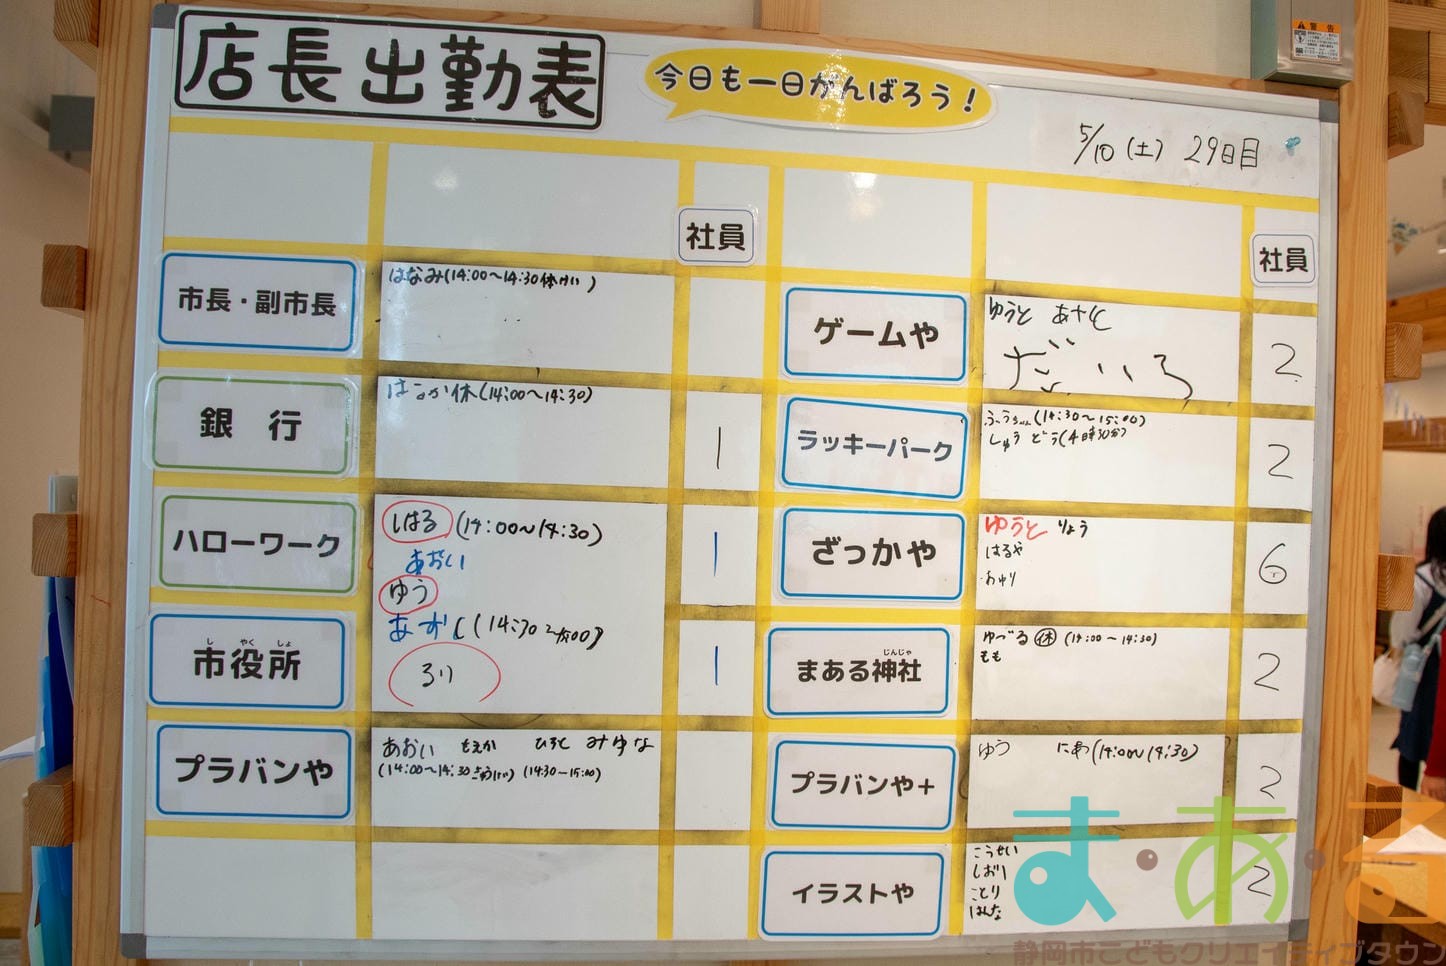 店長出勤表
今日も一日がんばろう！
5/10（土） 29日目
社員
社員
市長・副市長
はなみ(14:00〜14:30休けい)
銀 行
はるか休(14:00〜14:30)
1
ハローワーク
しはる (14:00〜14:30)
あおい
1
ゆう
し やく しょ
市役所
(14:30
るり
1
プラバンや
あおい もえか ひろと みゆな
(14:00〜14:30 (14:30〜15:00)
ゲームや
ゆうと あさと
だいろ
2
ラッキーパーク
(14:30〜15:00)
しゅう
2
ざっかや
ゆうと りょう
はるや
6
じんじゃ
まある神社
ゆづる 休 (14:00〜14:30)
もも
2
プラバンや＋
ゆう にあ(14:00〜14:30)
2
イラストや
こうせい
しおり
ことり
はんな
2
ま・あ・る
静岡市こどもクリエイティブタウン
警告